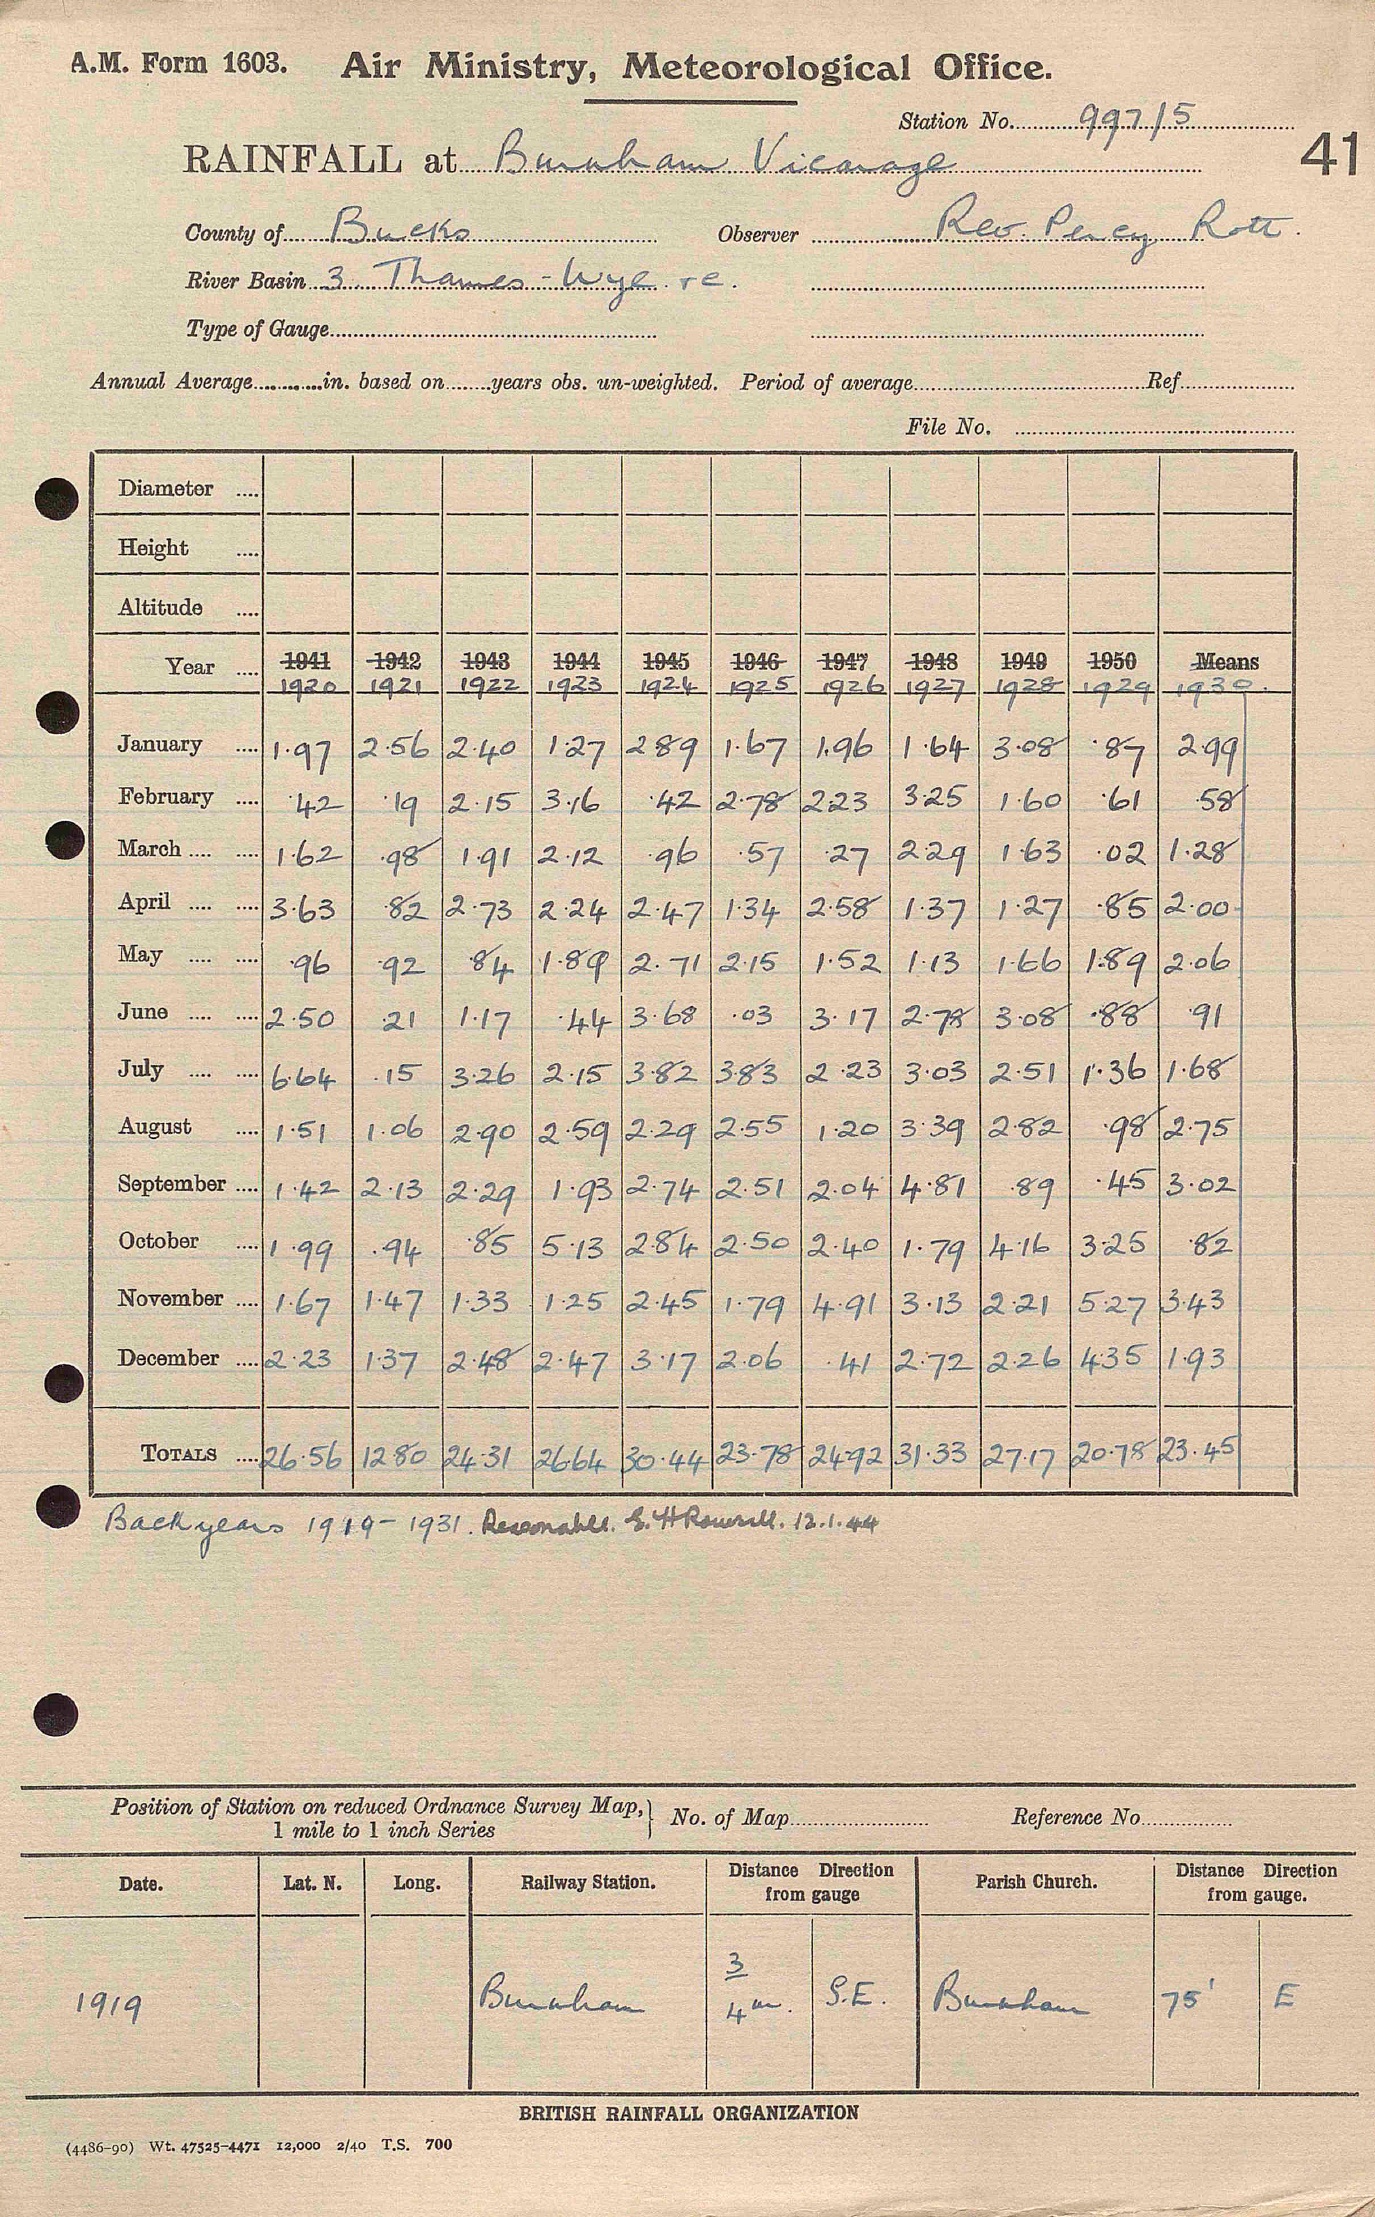 A.M. Form 1603. Air Ministry, Meteorological Office.
Station No. 997/5
41
RAINFALL at Burnham Vicarage
County of Bucks Observer Rev. Percy Rott.
River Basin 3. Thames - Wye. & c.
Type of Gauge
Annual Average in. based on years obs. un-weighted. Period of average Ref
File No.
Diameter
Height
Altitude
Year 1941 1942 1943 1944 1945 1946 1947 1948 1949 1950 Means
1920 1921 1922 1923 1924 1925 1926 1927 1928 1929 1930.
January 1.97 2.56 2.40 1.27 2.89 1.67 1.96 1.64 3.08 .87 2.99
February .42 .19 2.15 3.16 .42 2.78 2.23 3.25 1.60 .61 .58
March 1.62 .98 1.91 2.12 .96 .57 .27 2.29 1.63 .02 1.28
April 3.63 .82 2.73 2.24 2.47 1.34 2.58 1.37 1.27 .85 2.00
May .96 .92 .84 1.89 2.71 2.15 1.52 1.13 1.66 1.89 2.06
June 2.50 .21 1.17 .44 3.68 .03 3.17 2.78 3.08 .88 .91
July 6.64 .15 3.26 2.15 3.82 3.83 2.23 3.03 2.51 1.36 1.68
August 1.51 1.06 2.90 2.59 2.29 2.55 1.20 3.39 2.82 .98 2.75
September 1.42 2.13 2.29 1.93 2.74 2.51 2.04 4.81 .89 .45 3.02
October 1.99 .94 .85 5.13 2.84 2.50 2.40 1.79 4.16 3.25 .82
November 1.67 1.47 1.33 1.25 2.45 1.79 4.91 3.13 2.21 5.27 3.43
December 2.23 1.37 2.48 2.47 3.17 2.06 .41 2.72 2.26 4.35 1.93
TOTALS 26.56 12.80 24.31 26.64 30.44 23.78 24.92 31.33 27.17 20.78 23.45
Back years 1919-1931. Reasonable. E.H Rowsell. 12.1.44
Position of Station on reduced Ordnance Survey Map, 1 mile to 1 inch Series } No. of Map Reference No.
Date. Lat. N. Long. Railway Station. Distance Direction from gauge Parish Church. Distance Direction from gauge.
1919 Burnham 3/4 m. S.E. Burnham 75' E
BRITISH RAINFALL ORGANIZATION
(4486-90) Wt. 47525-4471 12,000 2/40 T.S. 700